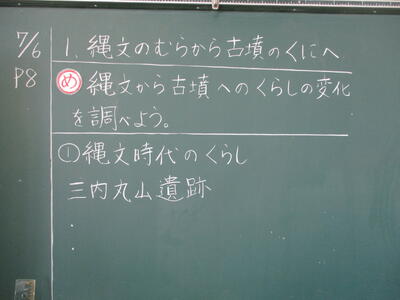 7/6
P8
1. 縄文のむらから古墳のくにへ
め 縄文から古墳へのくらしの変化
を調べよう。
① 縄文時代のくらし
三内丸山遺跡